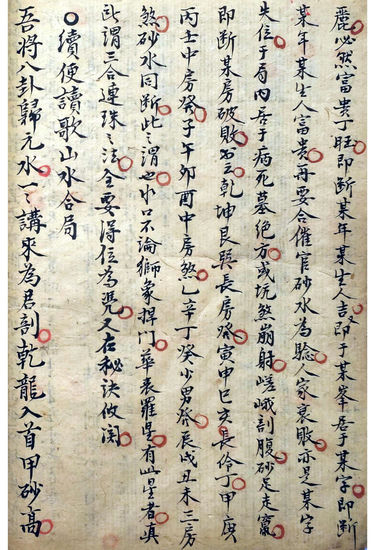 麗必然富貴丁旺即断某年某生人吉即于某峯居于某字即断
某年某生人富貴再要合催官砂水為驗人家衰敗亦是某字
失位于局内居于病死墓絶方或坑煞崩射嵯峨割腹砂足走竄
即断某房破敗出云乾坤艮巽長房發寅申巳亥長伶丁甲庚
丙壬中房發子午卯酉中房煞乙辛丁癸少男發辰戌丑未三房
煞砂水同断此之謂也水口不論獅象捍門華表羅星有此星者真
此謂三合連珠之法全要得位為淂又在秘訣做闵
〇續便讀歌山水合局
吾將八卦歸元水一々講來為君剖乾龍入首甲砂高